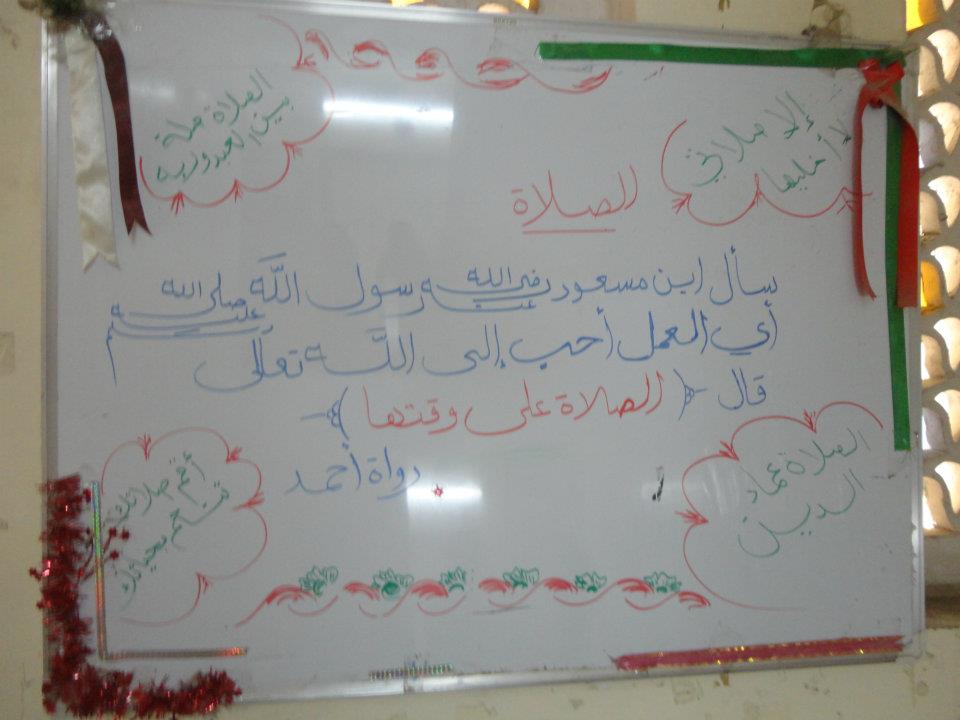 إلا صلاتي
لا أخليها
الصلاة صلة
بين العبد وربه
الصلاة
سأل ابن مسعود رضي الله عنه رسول الله صلى الله عليه وسلم
أي العمل أحب إلى الله تعالى
قال ﴿الصلاة على وقتها﴾
رواة أحمد
الصلاة عماد
الدين
أقم صلاتك
تنعم بحياتك